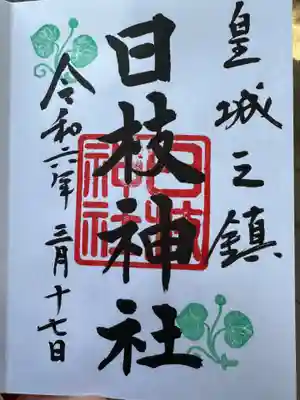 皇城之鎮
日枝神社
日枝神社
令和六年 三月十七日